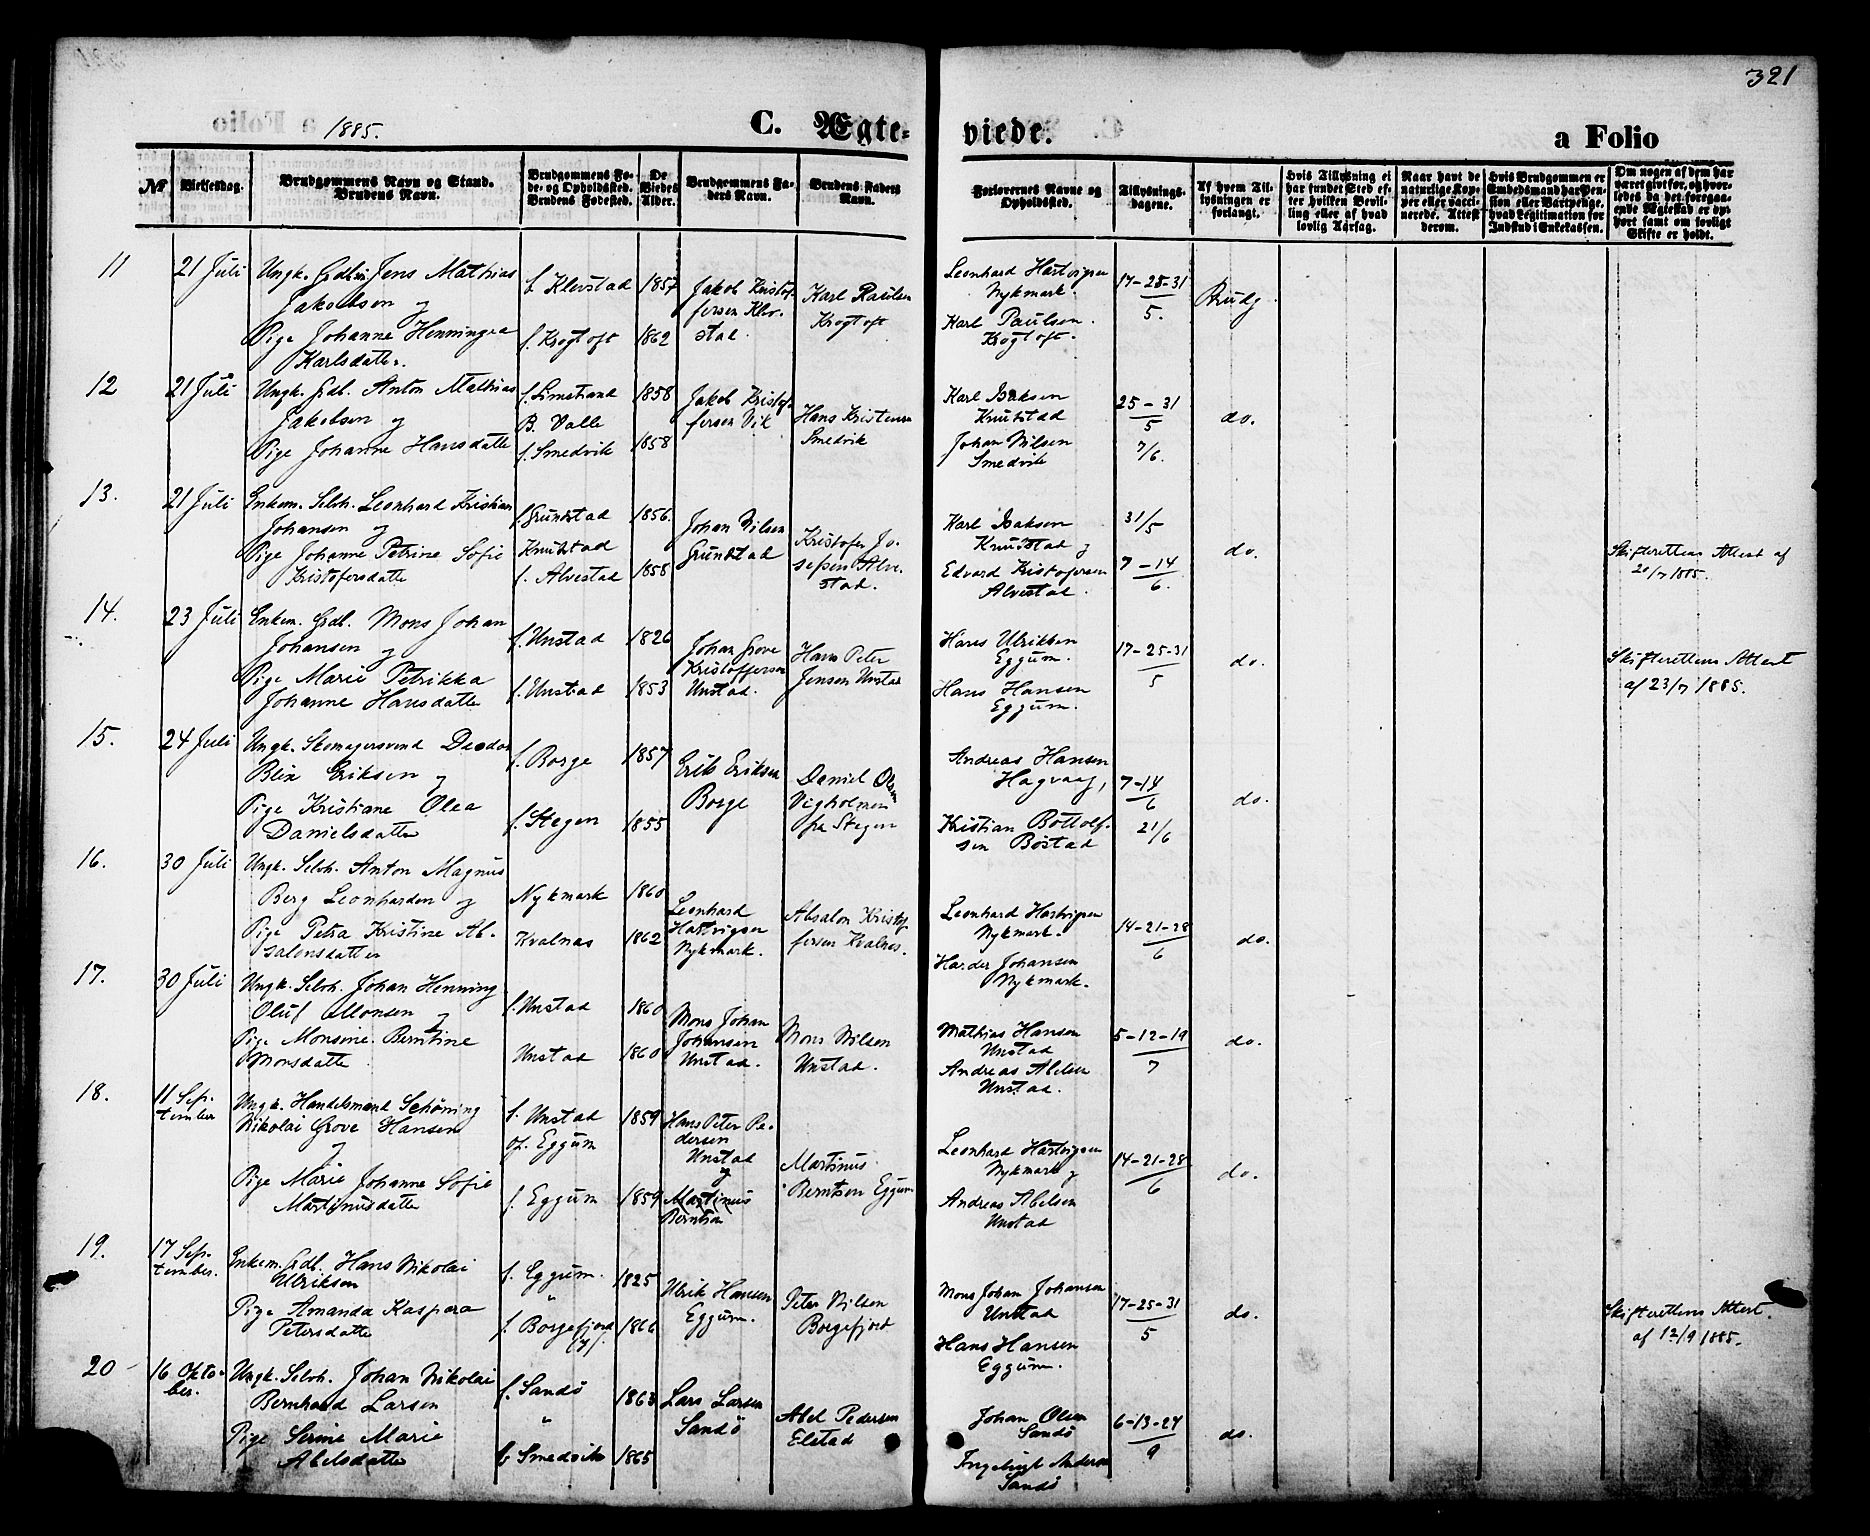 321
1885.
C. Ægte-
viede.
a Folio
№
Vielsesdag.
Brudgommens Navn og Stand.
Brudens Navn.
Brudgommens Fø-
de- og Opholdssted.
Brudens Fødested.
De
Viedes
Alder.
Brudgommens Fa-
ders Navn.
Brudens Faders
Navn.
Forlovernes Navne og
Opholdssted.
Tillysnings-
dagene.
Af hvem Til-
lysningen er
forlangt.
Hvis Tillysning ei
har fundet Sted ef-
ter hvilken Bevil-
ling eller af hvad
lovlig Aarsag.
Naar havt de
naturlige Kop-
per eller vacci-
nerede. Attest
derom.
Hvis Brudgommen er
Embedsmand har Pen-
sion eller Vartpenge,
hvad Legitimation for
Indskud i Enkekassen.
Om nogen af dem har
været gift før, og hvor-
ledes da det foregaa-
ende Ægteskab er op-
hørt samt om lovligt
Skifte er holdt.
11
21 Juli
Ungk. Gdbr. Jens Mathias
Jakobsen og
Pige Johanne Henningea
Karlsdatter.
f. Klevstad
f. Krogtoft
1857
1862
Jakob Kristof-
fersen Klev-
stad.
Karl Paulsen
Krogtoft
Leonhard Hartvigsen
Nykmark.
Karl Paulsen.
Krogtoft.
17-25-31
5.
Brudg.
12
21 Juli
Ungk. Gdb. Anton Mathias
Jakobsen og
Pige Johanne Hansdatter
f. Limstrand
B. Valle
f. Smedvik
1858
1858
Jakob Kristof-
fersen Vik
Hans Kristensen
Smedvik
Karl Isaksen
Knutstad
Johan Nilsen
Smedvik
25-31
5
7/6.
do.
13.
21 Juli
Enkem. Selvh. Leonhard Kristian
Johansen og
Pige Johanne Petrine Sofie
Kristofersdatter
f. Grundstad
Knutstad
f. Alvestad
1856.
1858
Johan Nilsen
Grundstad
Kristofer Jo-
sefsen Alve-
stad.
Karl Isaksen
Knutstad og
Edvard Kristofersen
Alvestad.
31/5
7-14
6.
do.
Skifterettens Attest af
20/7 1885.
14.
23 Juli
Enkem. Gdb. Mons Johan
Johansen og
Pige Marie Petrikka
Johanne Hansdatter
f. Unstad
f. Unstad
1826
1853
Johan Grove
Kristoffersen
Unstad.
Hans Peter
Jensen Unstad
Hans Ulriksen
Eggum.
Hans Hansen
Eggum.
17-25-31
5
do.
Skifterettens Attest
af 23/7 1885.
15.
24 Juli
Ungk. Skomagersvend
Blix Eriksen og
Pige Kristiane Olea
Danielsdatter
f. Borge
f. Stegen
1857
1855
Erik Eriksen
Borge
Daniel Olsen
Vigholmen
fra Stegen
Andreas Hansen
Hagvaag,
Kristian Bottolf-
sen Bøstad
7-14
6
21/6
do.
16.
30 Juli
Ungk. Selvh. Anton Magnus
Berg Leonhardsen og
Pige Petra Kristine Ab-
salonsdatter
Nykmark
Kvalnas
1860
1862
Leonhard
Hartvigsen
Nykmark.
Absalon Kristof-
fersen Kvalnes.
Leonhard Hartvigsen
Nykmark.
Harder Johansen
Nykmark.
14-21-28
6
do.
17.
30 Juli
Ungk. Selvh. Johan Henning
Oluf Monsen og
Pige Monsine Berntine
Monsdatter
f. Unstad
Unstad
1860
1860
Mons Johan
Johansen
Unstad.
Mons Nilsen
Unstad.
Mathias Hansen
Unstad
Andreas Abelsen
Unstad.
5-12-19
7
do.
18.
11 Sep-
tember
Ungk. Handelsmand Schöning
Nikolai Grove Hansen
og
Pige Marie Johanne Sofie
Martinusdatter
f. Unstad
op. Eggum
f. Eggum
1859
1859
Hans Peter Pe-
dersen
Unstad
og
Martinus
Berntsen
Martinus
Berntsen Eggum
Leonhard Hartvigsen
Nykmark og
Andreas Abelsen
Unstad
14-21-28
6
do.
19.
17 Sep-
tember.
Enkem. Gdb. Hans Nikolai
Ulriksen
Pige Amanda Kaspara
Petersdatter
f. Eggum.
"
f. Borgefjord
1825
1866
Ulrik Hansen
Eggum.
Peter Nilsen
Borgefjord
Mons Johan Johansen
Unstad
Hans Hansen
Eggum.
17-25-31
5
do.
Skifterettens Attest.
af 12/9 1885.
20
16 Okto-
ber.
Ungk. Selvh. Johan Nikolai
Bernhard Larsen
Pige Serine Marie
Abelsdatter
f. Sandö
"
f. Smedvik
1863
1865
Lars Larsen
Sandö
Abel Pedersen
Elstad
Johan Olsen
Sandö
Ingebrigt Andersen
Sandö
6-13-27
9
do.